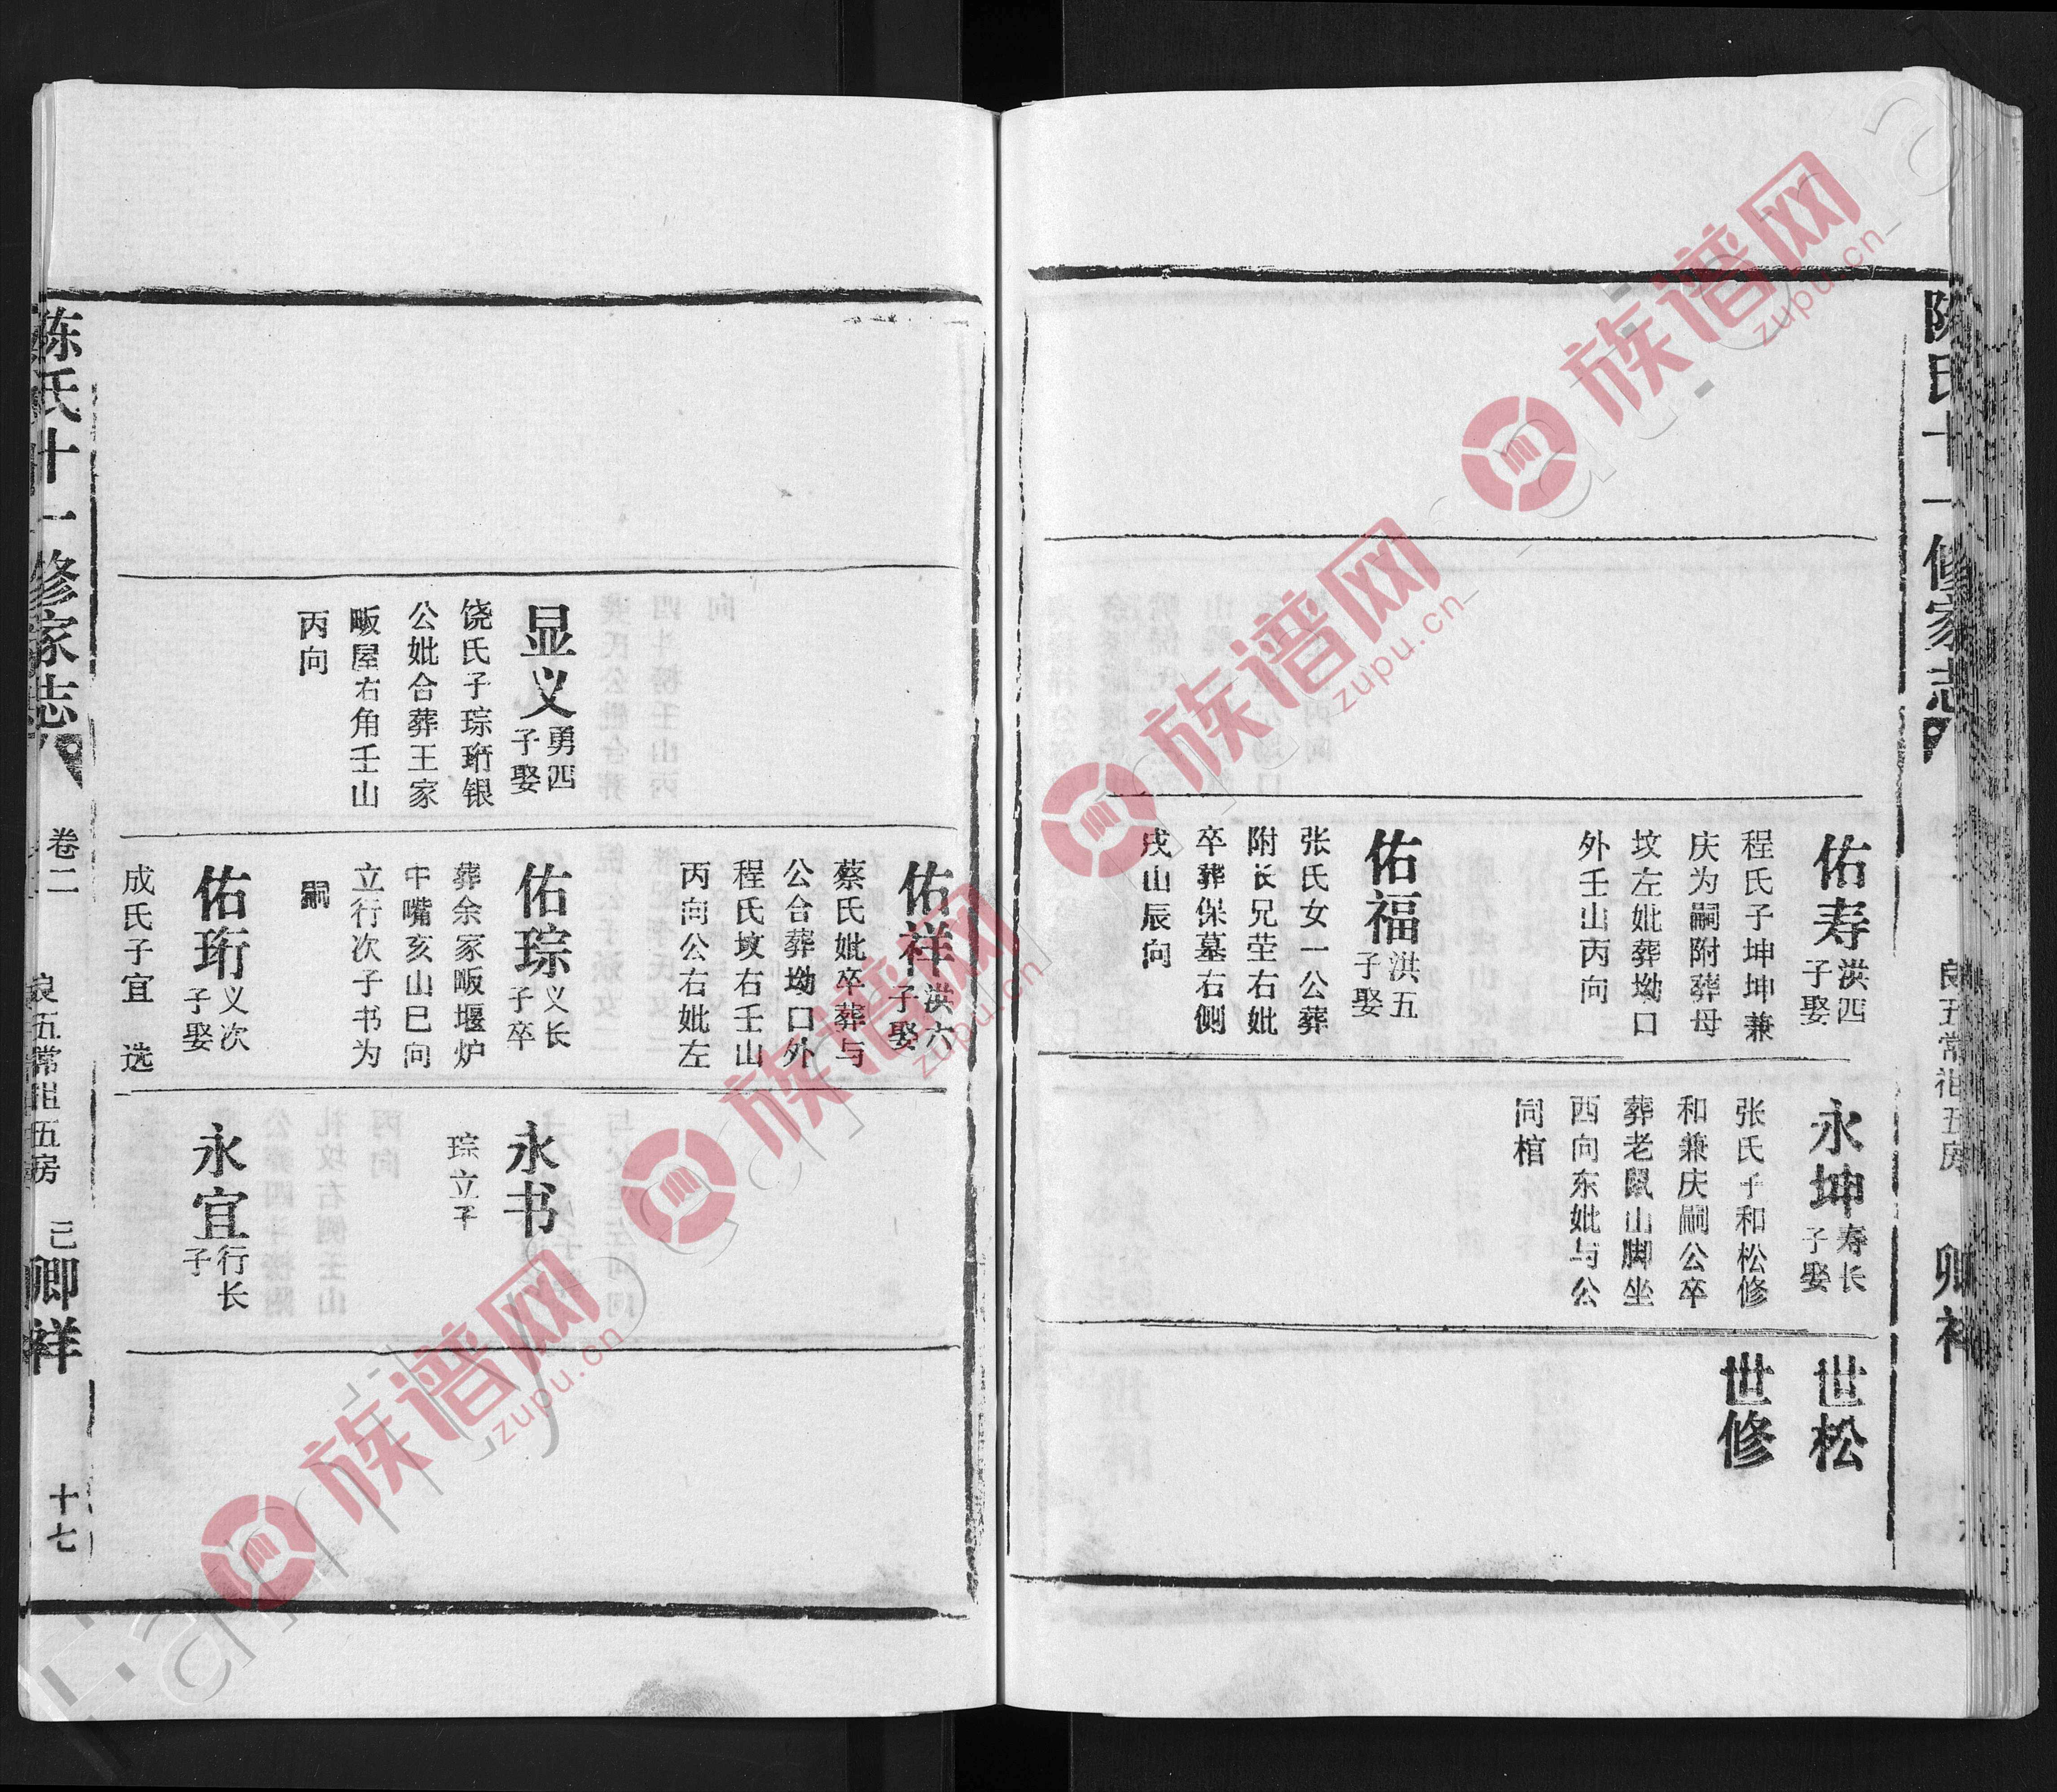 陈氏十一修家志
良五常祖五房
卿祥
佑寿洪四子娶
程氏子坤坤兼
庆为嗣附葬母
坟左妣葬坳口
外壬山丙向
佑福洪五子娶
张氏女一公葬
附长兄茔右妣
卒葬保墓右侧
戌山辰向
永坤寿长子娶
张氏子和松修
和兼庆嗣公卒
葬老鼠山脚坐
西向东妣与公
同棺
世松
世修
显义勇四子娶
饶氏子琮珩银
公妣合葬王家
畈屋右角壬山
丙向
佑祥洪六子娶
蔡氏妣卒葬与
公合葬坳口外
程氏坟右壬山
丙向公右妣左
佑琮义长子卒
葬余家畈堰炉
中嘴亥山巳向
立行次子书为
嗣
佑珩义次子娶
成氏子宜 选
永书
琮立子
永宜行长子
陈氏十一修家志
卷二
良五常祖五房
己
卿祥
十七
族谱网
zupu.cn
族谱网
zupu.cn
族谱网
zupu.cn
族谱网
zupu.cn